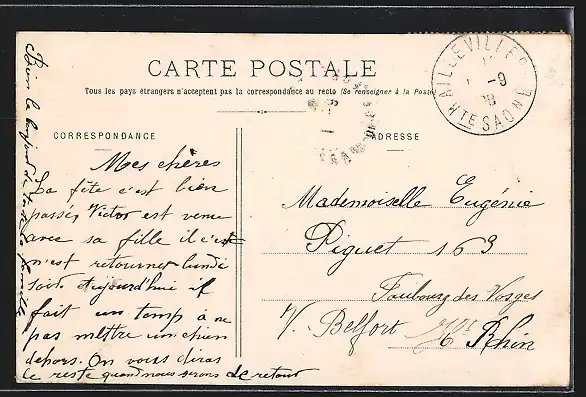 CARTE POSTALE
Tous les pays étrangers n'acceptent pas la correspondance au recto (Se renseigner à la Poste)
CORRESPONDANCE
ADRESSE
AILLEVILLERS
-9
HTE SAONE
Mes chères
La fête c'est bien
passée Victor est venu
avec sa fille il c'est
n'est retourner lundi
soir Aujourd'hui il
fait un temp à ne
pas mettre un chien
dehors. On vous diras
le reste quand nous serons de retour
Bien le bonjour de toute la famille
Mademoiselle Eugénie
Piguet 163
Faubourg des Vosges
V. Belfort Ht Rhin